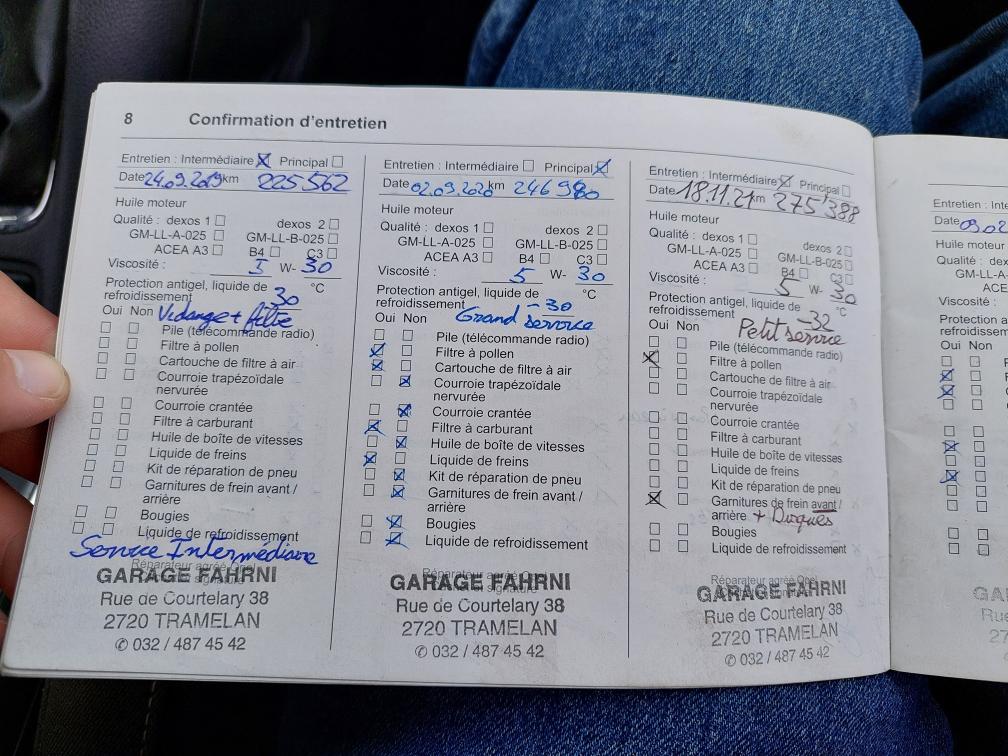 8 Confirmation d'entretien
Entretien : Intermédiaire ☒ Principal ☐
Date 24.09.2019 km 225 562
Huile moteur
Qualité : dexos 1 ☐ dexos 2 ☐
GM-LL-A-025 ☐ GM-LL-B-025 ☐
ACEA A3 ☐ B4 ☐ C3 ☐
Viscosité : 5 W- 30
Protection antigel, liquide de
refroidissement 30 °C
Oui Non Vidange + filtre
☐ ☐ Pile (télécommande radio)
☐ ☐ Filtre à pollen
☐ ☐ Cartouche de filtre à air
☐ ☐ Courroie trapézoïdale
nervurée
☐ ☐ Courroie crantée
☐ ☐ Filtre à carburant
☐ ☐ Huile de boîte de vitesses
☐ ☐ Liquide de freins
☐ ☐ Kit de réparation de pneu
☐ ☐ Garnitures de frein avant /
arrière
☐ ☐ Bougies
☐ ☐ Liquide de refroidissement
Service Intermediaire
GARAGE FAHRNI
Rue de Courtelary 38
2720 TRAMELAN
✆ 032 / 487 45 42
Entretien : Intermédiaire ☐ Principal ☒
Date 02.09.2020 km 246 980
Huile moteur
Qualité : dexos 1 ☐ dexos 2 ☐
GM-LL-A-025 ☐ GM-LL-B-025 ☐
ACEA A3 ☐ B4 ☐ C3 ☐
Viscosité : 5 W- 30
Protection antigel, liquide de
refroidissement -30 °C
Oui Non Grand service
☐ ☐ Pile (télécommande radio)
☒ ☐ Filtre à pollen
☒ ☐ Cartouche de filtre à air
☐ ☒ Courroie trapézoïdale
nervurée
☐ ☒ Courroie crantée
☒ ☐ Filtre à carburant
☐ ☒ Huile de boîte de vitesses
☒ ☐ Liquide de freins
☐ ☒ Kit de réparation de pneu
☐ ☒ Garnitures de frein avant /
arrière
☐ ☒ Bougies
☐ ☒ Liquide de refroidissement
Réparateur agréé Opel
GARAGE FAHRNI
Rue de Courtelary 38
2720 TRAMELAN
✆ 032 / 487 45 42
Entretien : Intermédiaire ☒ Principal ☐
Date 18.11.21 km 275'388
Huile moteur
Qualité : dexos 1 ☐ dexos 2 ☐
GM-LL-A-025 ☐ GM-LL-B-025 ☐
ACEA A3 ☐ B4 ☐ C3 ☐
Viscosité : 5 W- 30
Protection antigel, liquide de
refroidissement -32 °C
Oui Non Petit service
☐ ☐ Pile (télécommande radio)
☒ ☐ Filtre à pollen
☐ ☐ Cartouche de filtre à air
☐ ☐ Courroie trapézoïdale
nervurée
☐ ☐ Courroie crantée
☐ ☐ Filtre à carburant
☐ ☐ Huile de boîte de vitesses
☐ ☐ Liquide de freins
☐ ☐ Kit de réparation de pneu
☒ ☐ Garnitures de frein avant /
arrière + Disques
☐ ☐ Bougies
☐ ☐ Liquide de refroidissement
Réparateur agréé Opel
GARAGE FAHRNI
Rue de Courtelary 38
2720 TRAMELAN
✆ 032 / 487 45 42
Entretien :
Date
Huile moteur
Qualité :
Viscosité :
Oui Non